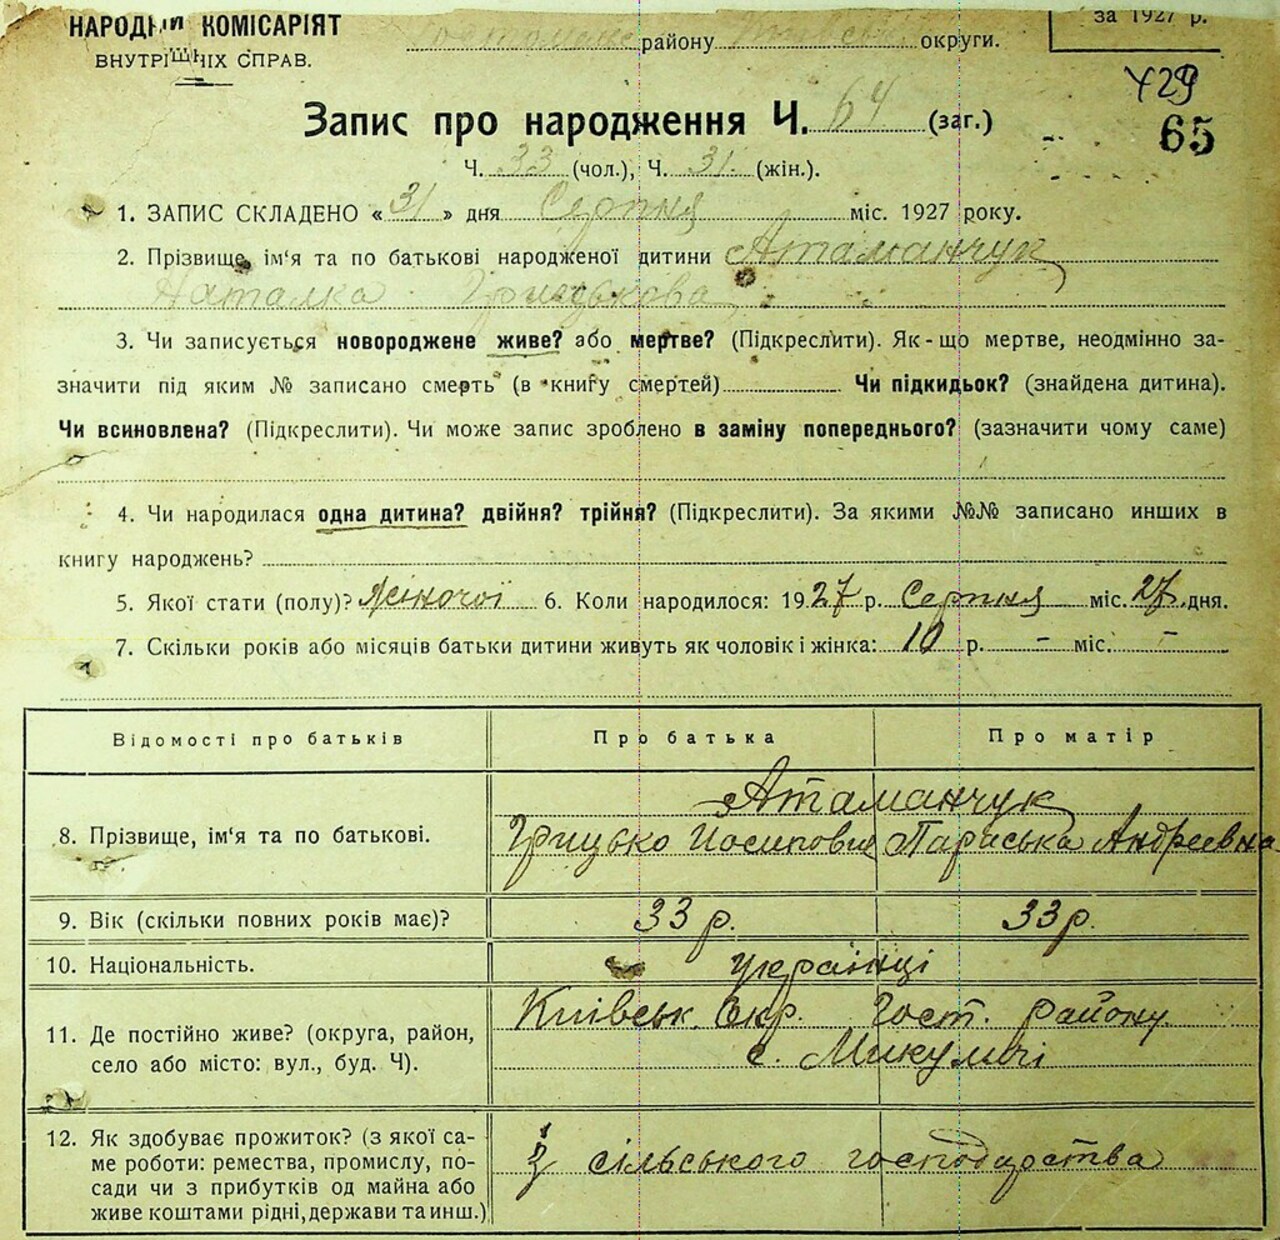 НАРОДНИЙ КОМІСАРІЯТ
ВНУТРІШНІХ СПРАВ.
району округи.
за 1927 р.
429
65
Запис про народження Ч. 64 (заг.)
Ч. 33 (чол.), Ч. 31. (жін.).
1. ЗАПИС СКЛАДЕНО «31» дня Серпня міс. 1927 року.
2. Прізвище, ім'я та по батькові народженої дитини Атаманчук
Наталка Грицькова
3. Чи записується новороджене живе? або мертве? (Підкреслити). Як-що мертве, неодмінно за-
значити під яким № записано смерть (в книгу смертей) Чи підкидьок? (знайдена дитина).
Чи всиновлена? (Підкреслити). Чи може запис зроблено в заміну попереднього? (зазначити чому саме)
4. Чи народилася одна дитина? двійня? трійня? (Підкреслити). За якими №№ записано инших в
книгу народжень?
5. Якої стати (полу)? Жіночої 6. Коли народилося: 1927 р. Серпня міс. 27 дня.
7. Скільки років або місяців батьки дитини живуть як чоловік і жінка: 10 р. - міс. -
Відомості про батьків Про батька Про матір
Атаманчук
8. Прізвище, ім'я та по батькові. Грицько Йосипович Параська Андреевна
9. Вік (скільки повних років має)? 33 р. 33 р.
10. Національність. українці
11. Де постійно живе? (округа, район, село або місто: вул., буд. Ч). Київськ. Окр. Гост. району
с. Микуличі
12. Як здобуває прожиток? (з якої са-
ме роботи: ремества, промислу, по- з сільського господарства
сади чи з прибутків од майна або
живе коштами рідні, держави та инш.)